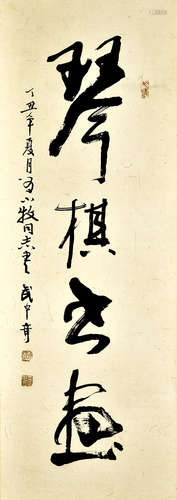 琴棋书画
丁丑年夏月为小牧同志书 武中奇